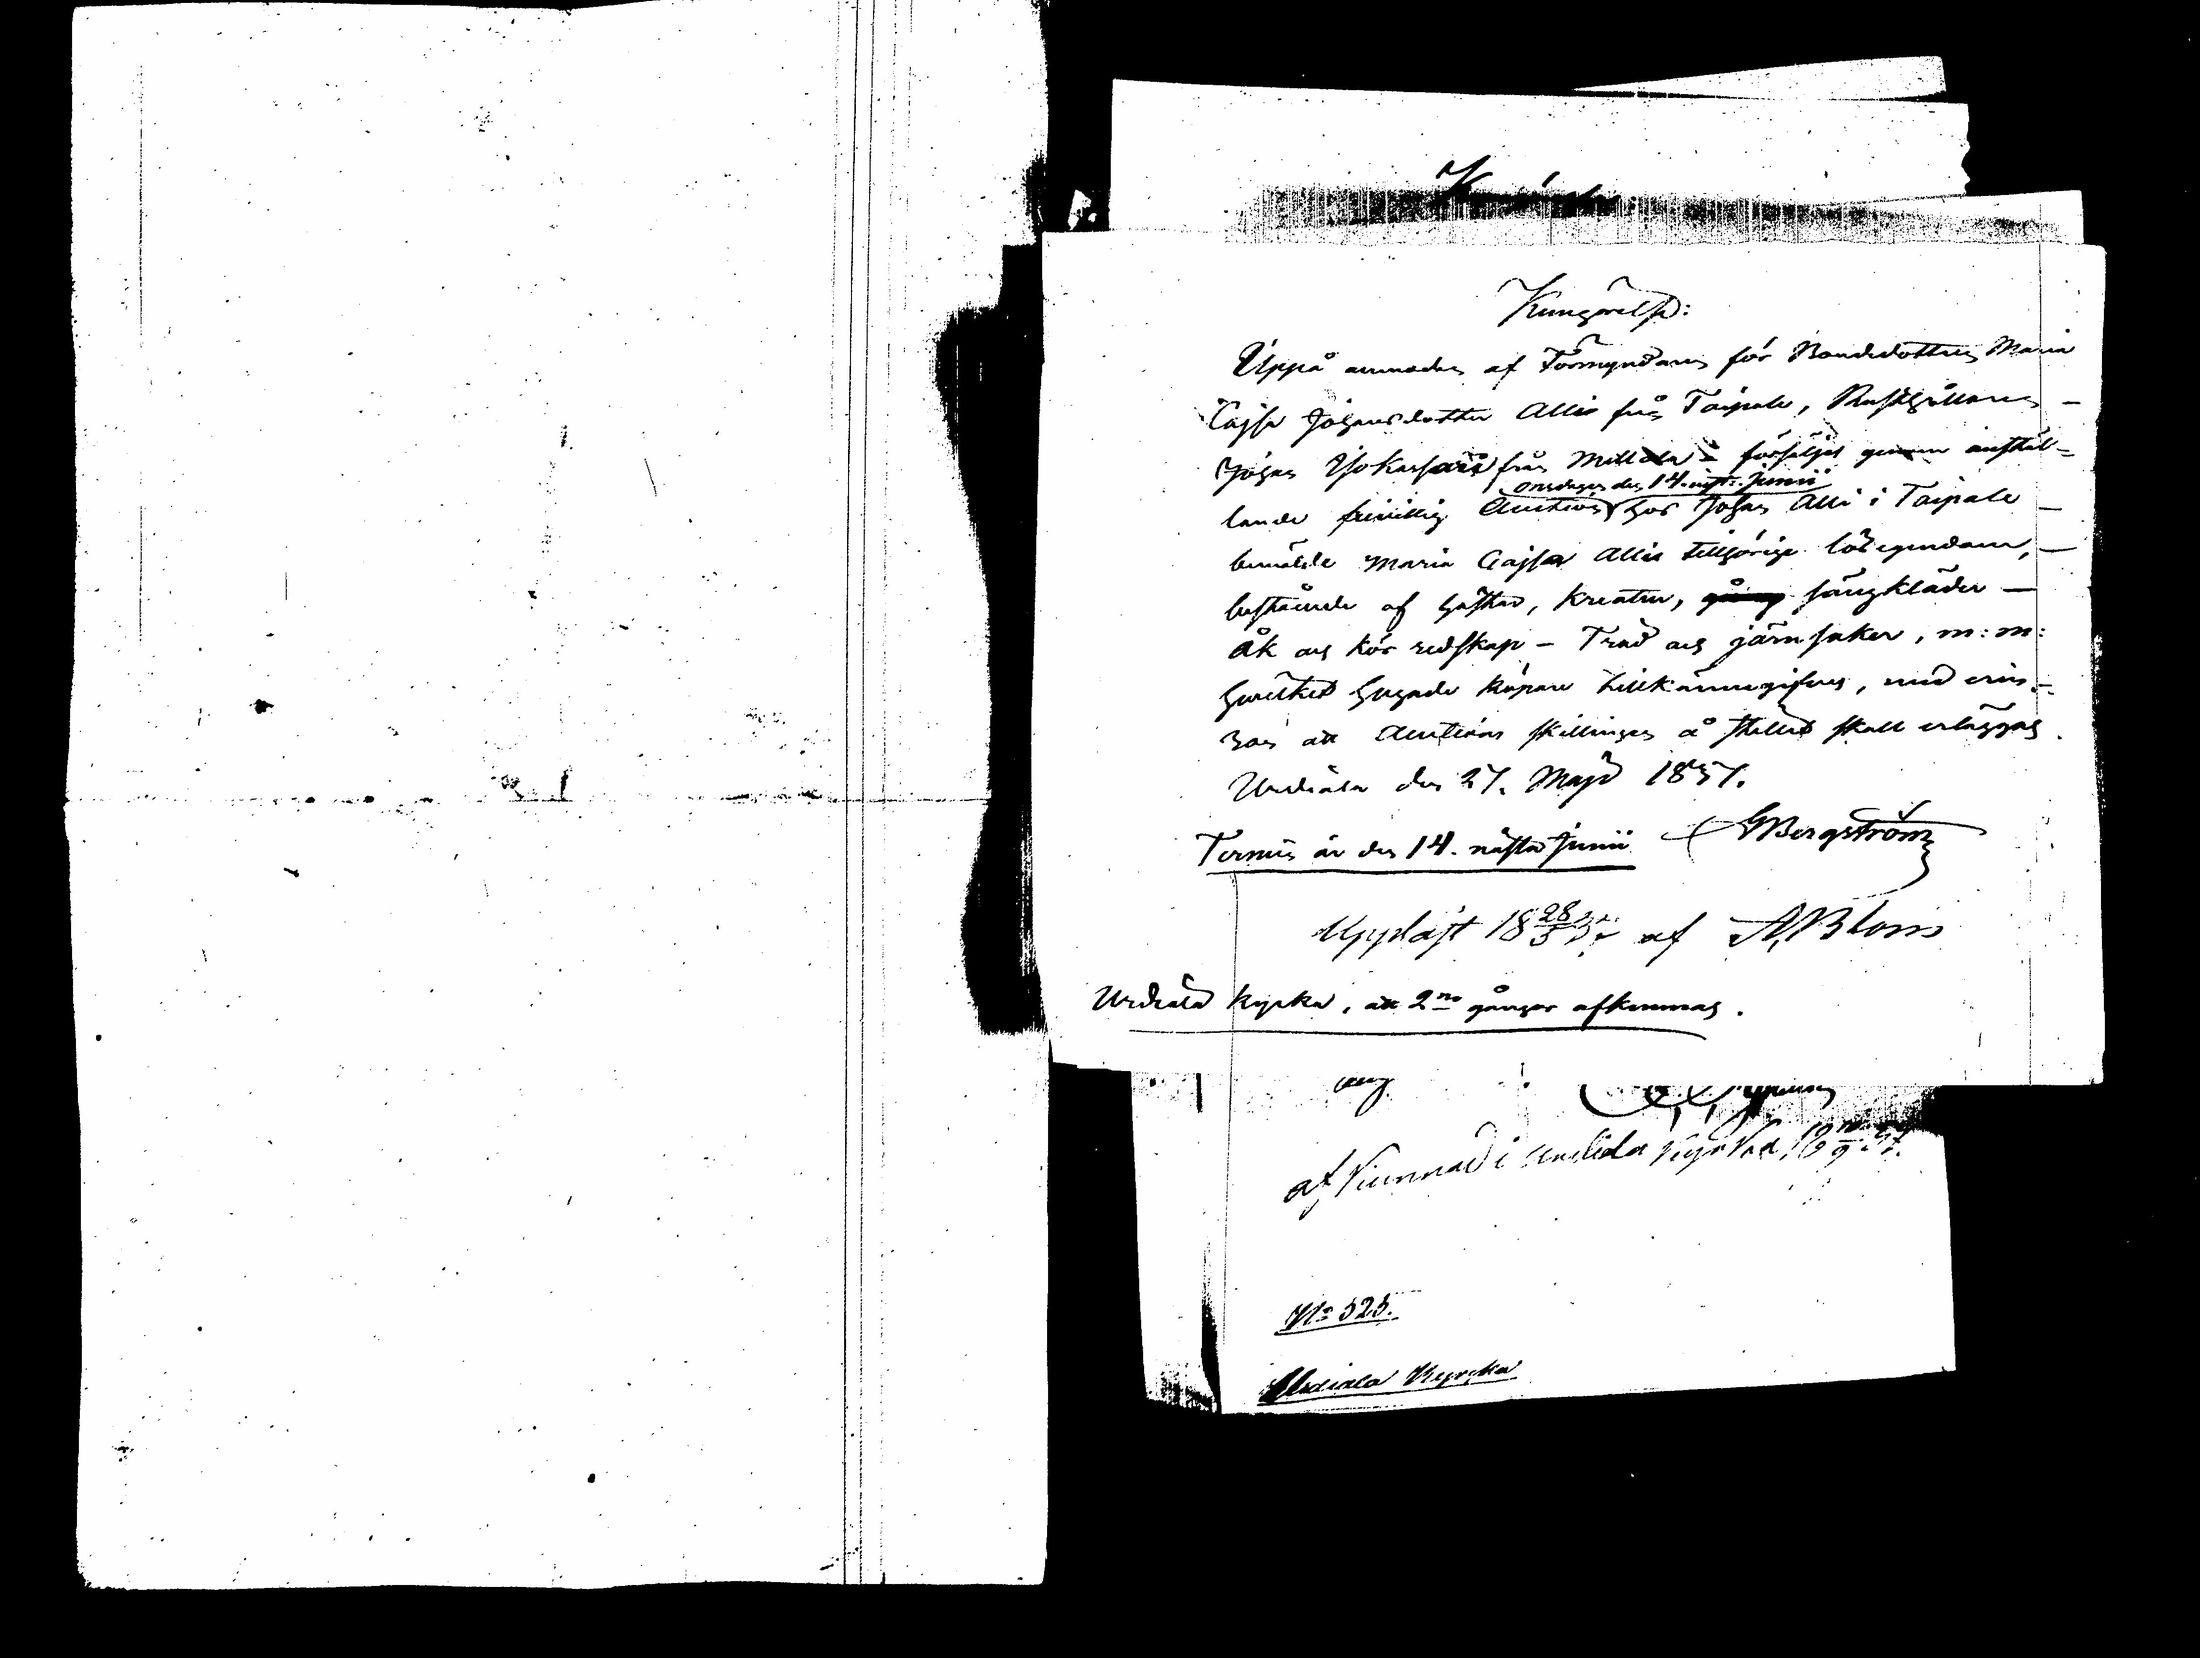 Kungörelse:
Uppå anmodan af Förmyndaren för Bondedottren Maria
Cajsa Johansdotter Alli från Taipale, Rusthållaren
Johan Isokassari från Mellola försäljes genom anstäl-
onsdagen den 14. nästa Junii
lande frivillig Auction hos Johan Alli i Taipale
bemälde Maria Cajsa Allis tillhörige lösegendom,
bestående af hästar, kreatur, gång sängkläder
åk och kör redskap - Träd och järnsaker, m:m:
hvilket hugade köpare tillkännagifves, med erin-
ran att Auctions skillingen å stället skall erläggas.
Urdiala den 27. Maji 1837.
Termin är den 14. nästa Junii GBergström
Uppläst 18 28/5 37 af A, Blom
Urdiala Kyrka, att 2ne gånger afkunnas.
afkunnad i Urdiala kyrka, 18 10/9 37.
No 525.
Urdiala Kyrcka